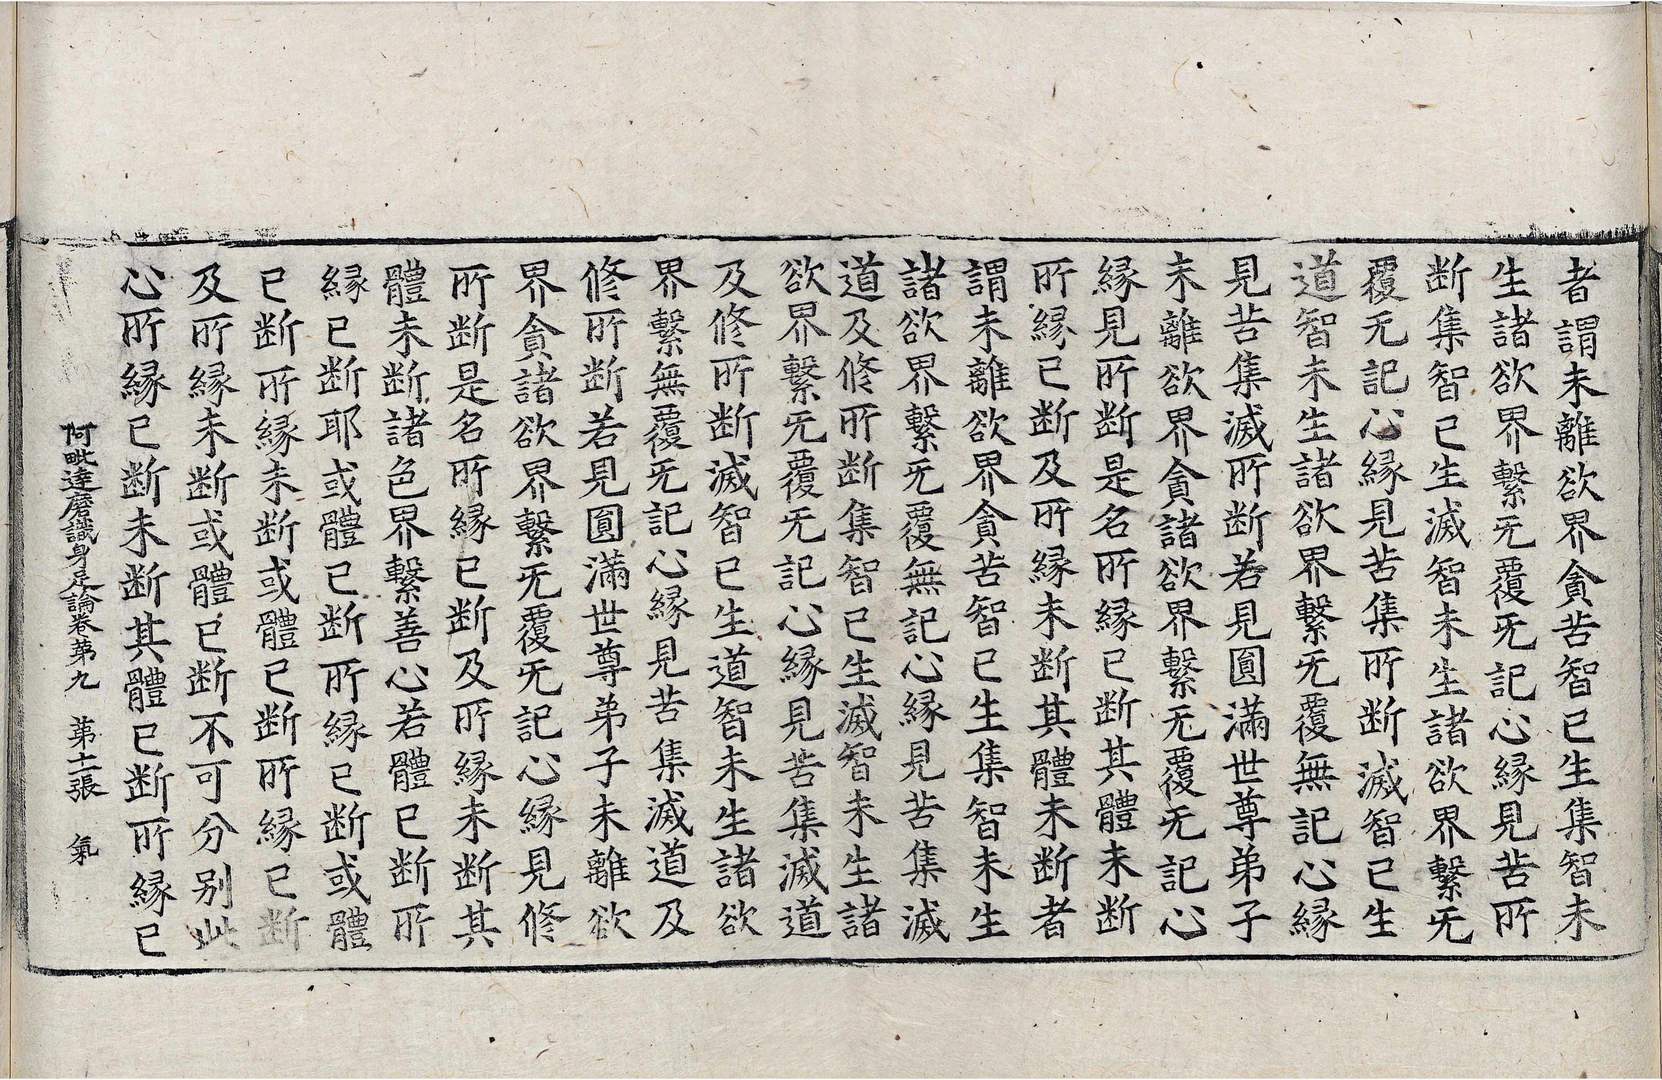 者謂未離欲界貪苦智已生集智未
生諸欲界繫无覆无記心縁見苦所
断集智已生滅智未生諸欲界繫无
覆无記心縁見苦集所断滅智已生
道智未生諸欲界繫无覆無記心縁
見苦集滅所断若見圓滿世尊弟子
未離欲界貪諸欲界繫无覆无記心
縁見所断是名所縁已断其體未断
所縁已断及所縁未断其體未断者
謂未離欲界貪苦智已生集智未生
諸欲界繫无覆無記心縁見苦集滅
道及修所断集智已生滅智未生諸
欲界繫无覆无記心縁見苦集滅道
及修所断滅智已生道智未生諸欲
界繫無覆无記心縁見苦集滅道及
修所断若見圓滿世尊弟子未離欲
界貪諸欲界繫无覆无記心縁見修
所断是名所縁已断及所縁未断其
體未断諸色界繫善心若體已断所
縁已断耶或體已断所縁已断或體
已断所縁未断或體已断所縁已断
及所縁未断或體已断不可分别此
心所縁已断未断其體已断所縁已
阿毗達磨識身足論卷第九　第十二張　氣